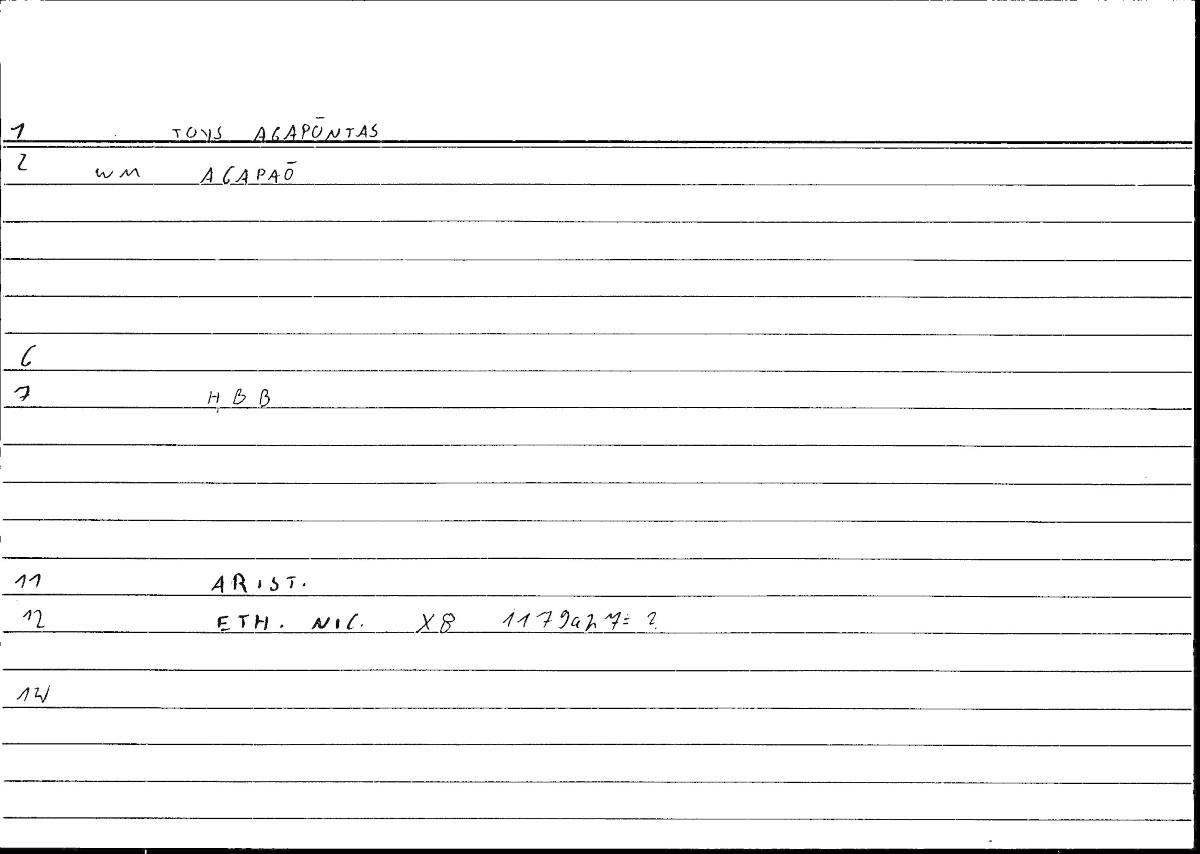 1 TOYS AGAPŌNTAS
2 WM AGAPAŌ
6
7 HBB
11 ARIST.
12 ETH. NIC. X8 1179a27=?
14